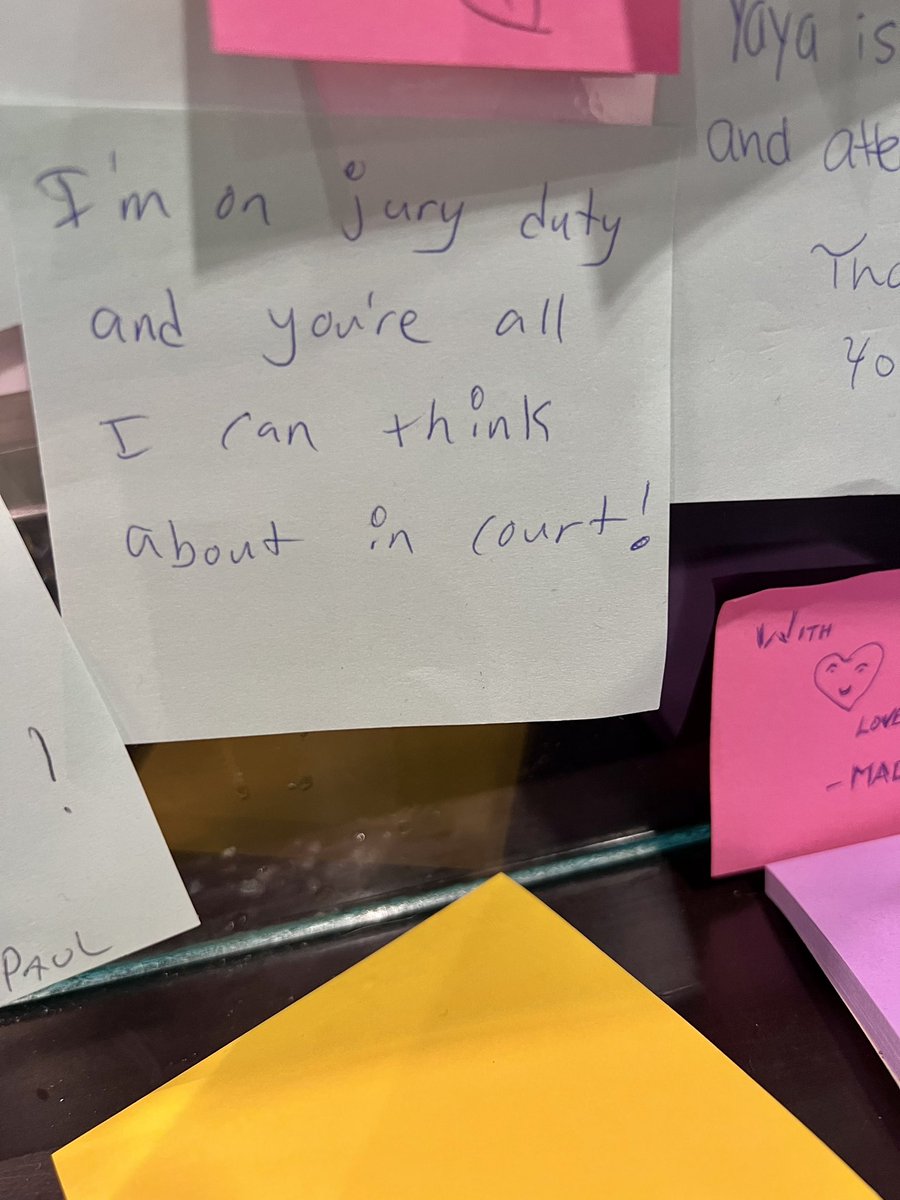 I'm on jury duty
and you're all
I can think
about in court!
Yaya is
and
WITH
LOVE
!
PAUL